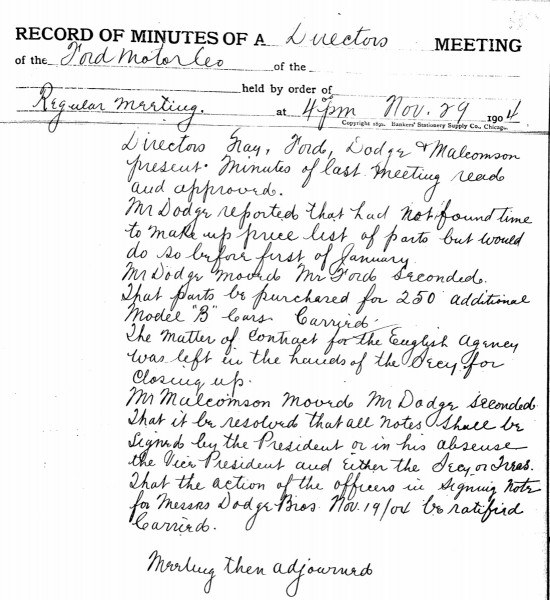 RECORD OF MINUTES OF A Directors MEETING
of the Ford Motor Co of the
held by order of
Regular Meeting. at 4 pm Nov. 29 1904
Copyright 1890. Bankers' Stationery Supply Co., Chicago.
Directors Gray, Ford, Dodge & Malcomson
present. Minutes of last Meeting read
and approved.
Mr Dodge reported that had not found time
to make up price list of parts but would
do so before first of January.
Mr Dodge moved Mr Ford Seconded.
That parts be purchased for 250 additional
Model "B" Cars Carried.
The Matter of Contract for the English Agency
was left in the hands of the Secy. for
Closing up.
Mr Malcomson Moved Mr Dodge Seconded
That it be resolved that all Notes Shall be
Signed by the President or in his absense
the Vice President and Either the Secy. or Treas.
That the action of the officers in Signing Note
for Messrs Dodge Bros. Nov. 19/04 be ratified
Carried.
Meeting then adjourned